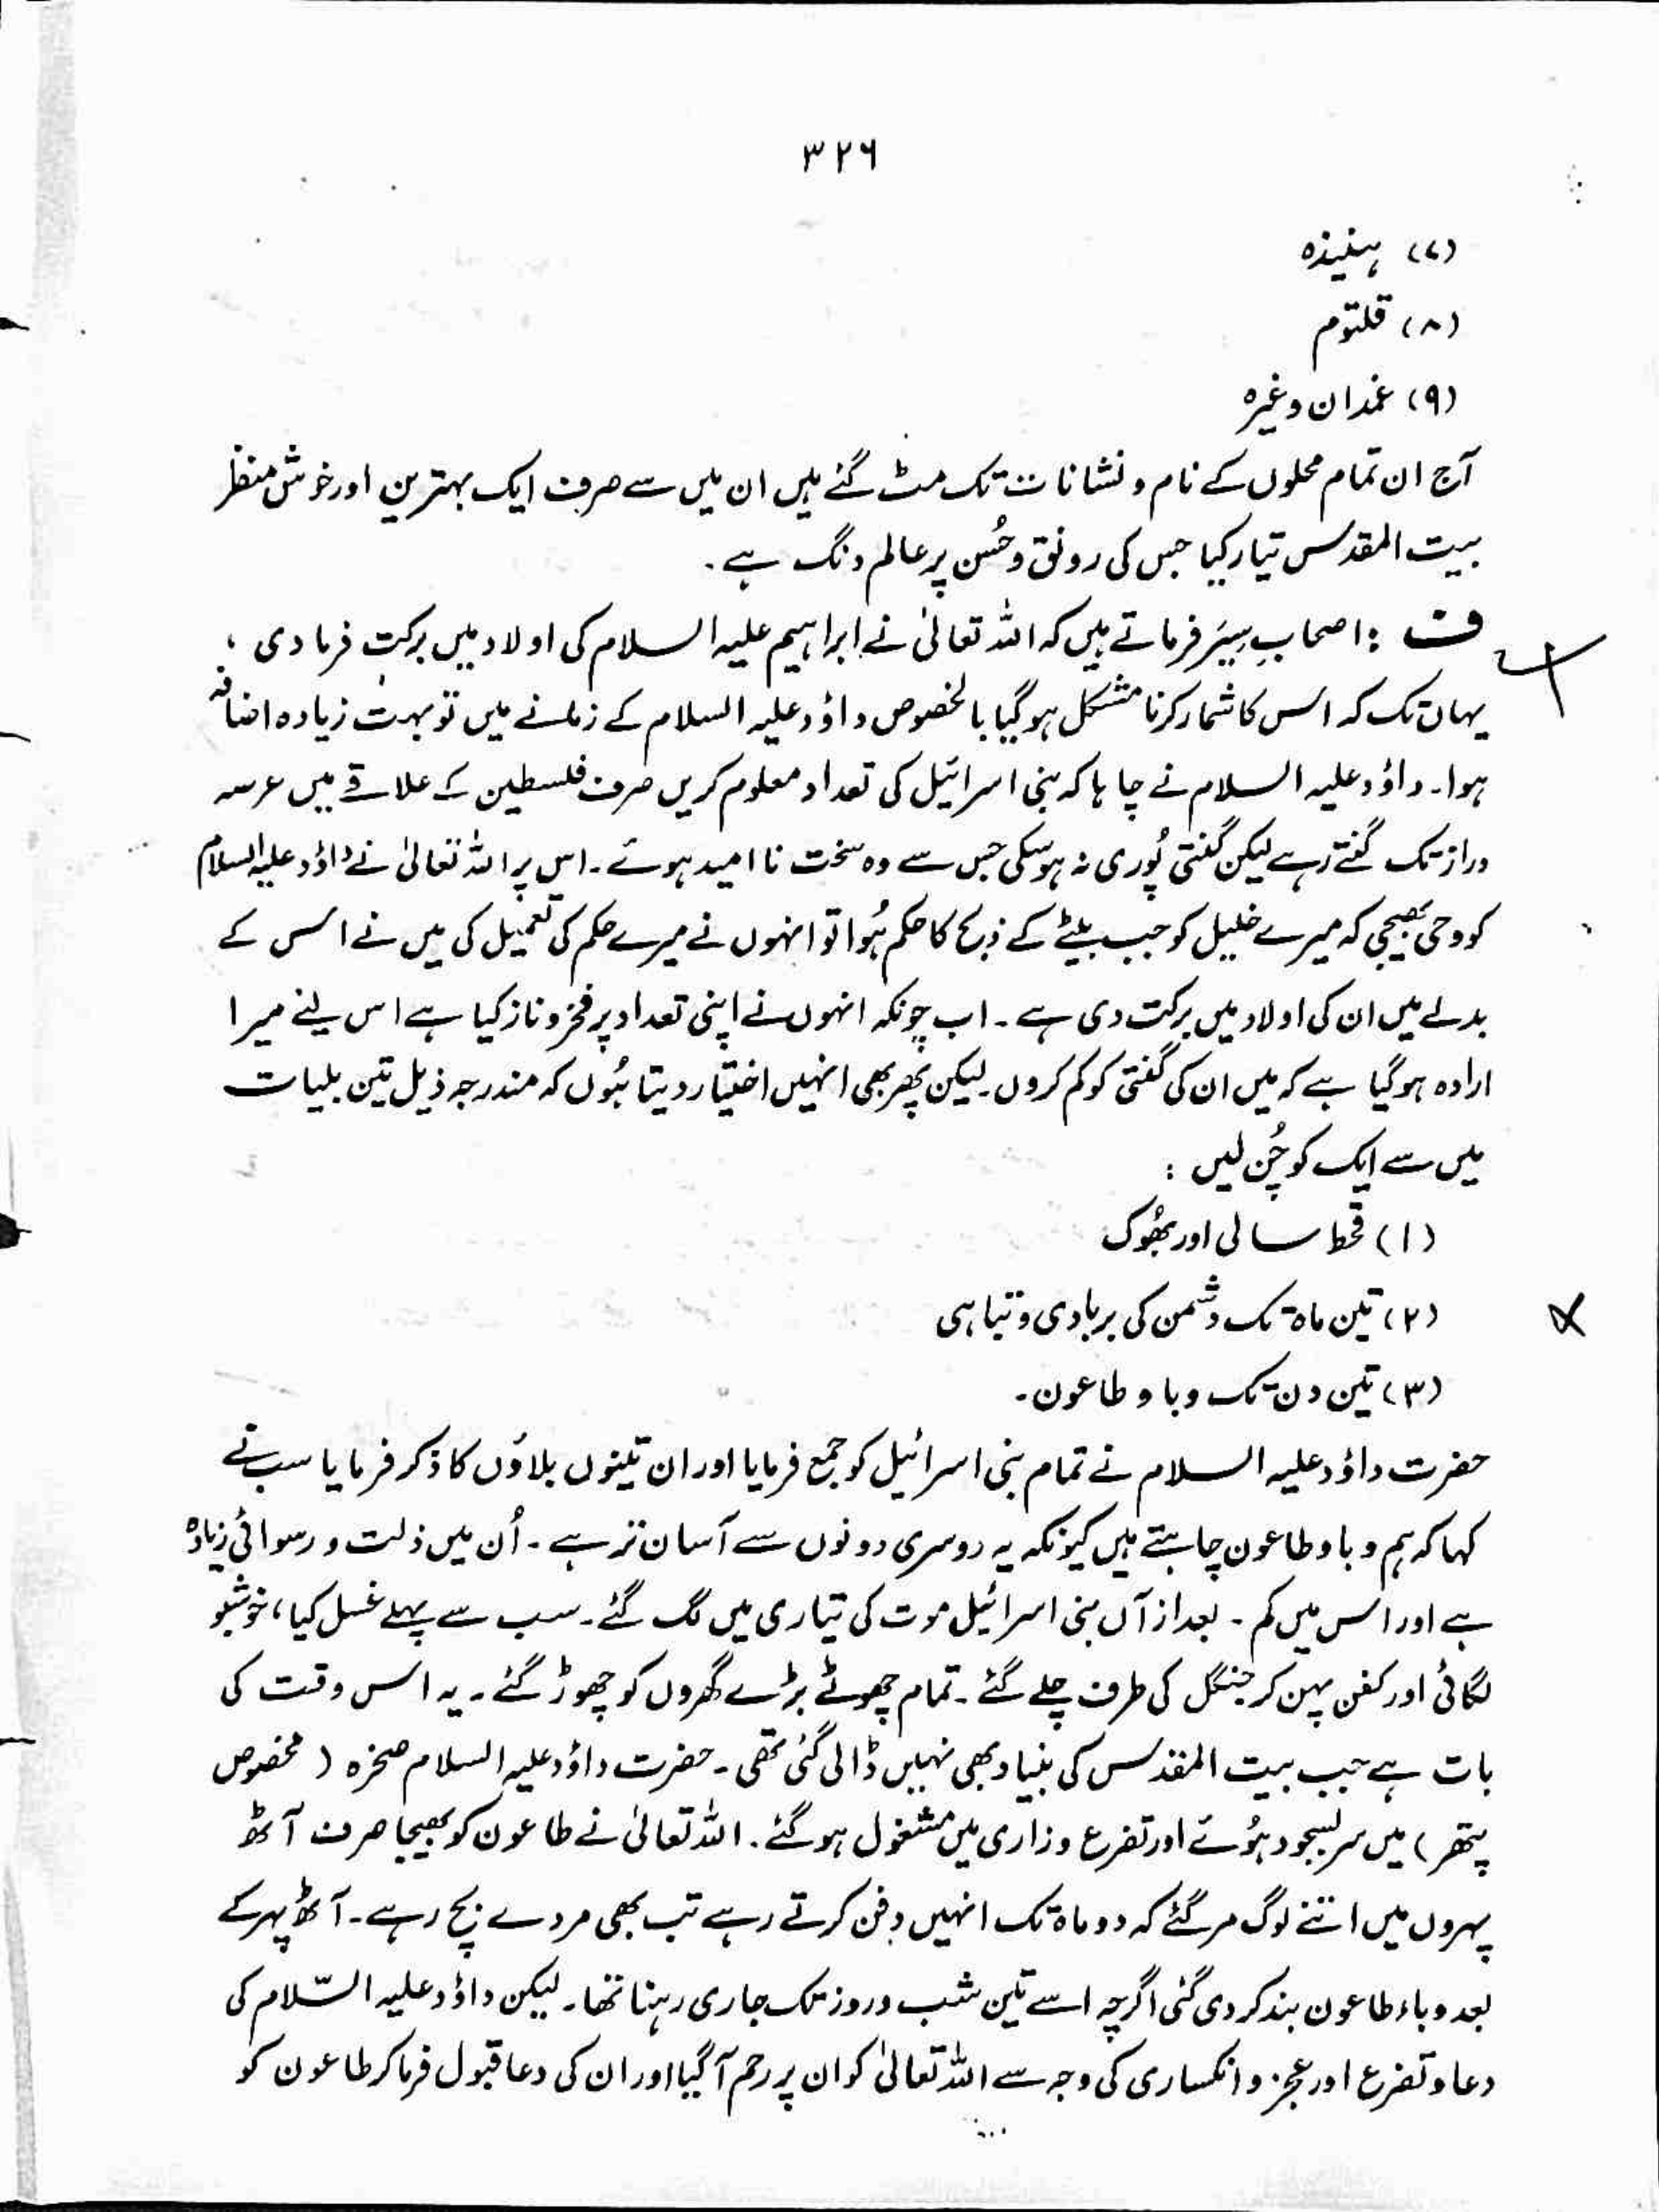 ۳۲۶
(۷) ہنیذہ
(۸) قلتوم
(۹) غمدان وغیرہ
آج ان تمام محلوں کے نام و نشانات تک مٹ گئے ہیں ان میں سے صرف ایک بہترین اور خوش منظر
بیت المقدس تیار کیا جس کی رونق و حُسن پر عالم دنگ ہے۔
ف : اصحابِ سِیَر فرماتے ہیں کہ اللہ تعالیٰ نے ابراہیم علیہ السلام کی اولاد میں برکت فرما دی ،
یہاں تک کہ اس کا شمار کرنا مشکل ہو گیا بالخصوص داؤد علیہ السلام کے زمانے میں تو بہت زیادہ اضافہ
ہوا۔ داؤد علیہ السلام نے چاہا کہ بنی اسرائیل کی تعداد معلوم کریں صرف فلسطین کے علاقے میں عرصہ
دراز تک گنتے رہے لیکن گنتی پُوری نہ ہو سکی جس سے وہ سخت نا امید ہوئے۔ اس پر اللہ تعالیٰ نے داؤد علیہ السلام
کو وحی بھیجی کہ میرے خلیل کو جب بیٹے کے ذبح کا حکم ہُوا تو انہوں نے میرے حکم کی تعمیل کی میں نے اس کے
بدلے میں ان کی اولاد میں برکت دی ہے۔ اب چونکہ انہوں نے اپنی تعداد پر فخر و ناز کیا ہے اس لئے میرا
ارادہ ہو گیا ہے کہ میں ان کی گنتی کو کم کروں۔ لیکن پھر بھی انہیں اختیار دیتا ہُوں کہ مندرجہ ذیل تین بلیات
میں سے ایک کو چُن لیں :
(۱) قحط سالی اور بھُوک
(۲) تین ماہ تک دشمن کی بربادی و تباہی
(۳) تین دن تک وبا و طاعون۔
حضرت داؤد علیہ السلام نے تمام بنی اسرائیل کو جمع فرمایا اور ان تینوں بلاؤں کا ذکر فرمایا سب نے
کہا کہ ہم وبا و طاعون چاہتے ہیں کیونکہ یہ دوسری دونوں سے آسان تر ہے۔ اُن میں ذلت و رسوائی زیادہ
ہے اور اس میں کم۔ بعد از آں بنی اسرائیل موت کی تیاری میں لگ گئے۔ سب سے پہلے غسل کیا، خوشبو
لگائی اور کفن پہن کر جنگل کی طرف چلے گئے۔ تمام چھوٹے بڑے گھروں کو چھوڑ گئے۔ یہ اس وقت کی
بات ہے جب بیت المقدس کی بنیاد بھی نہیں ڈالی گئی تھی۔ حضرت داؤد علیہ السلام صخرہ ( مخصوص
پتھر) میں سربسجود ہُوئے اور تضرع و زاری میں مشغول ہو گئے۔ اللہ تعالیٰ نے طاعون کو بھیجا صرف آٹھ
پہروں میں اتنے لوگ مر گئے کہ دو ماہ تک انہیں دفن کرتے رہے تب بھی مردے بچ رہے۔ آٹھ پہر کے
بعد وباء طاعون بند کر دی گئی اگرچہ اسے تین شب و روز تک جاری رہنا تھا۔ لیکن داؤد علیہ السّلام کی
دعا و تضرع اور عجز و انکساری کی وجہ سے اللہ تعالیٰ کو ان پر رحم آ گیا اور ان کی دعا قبول فرما کر طاعون کو